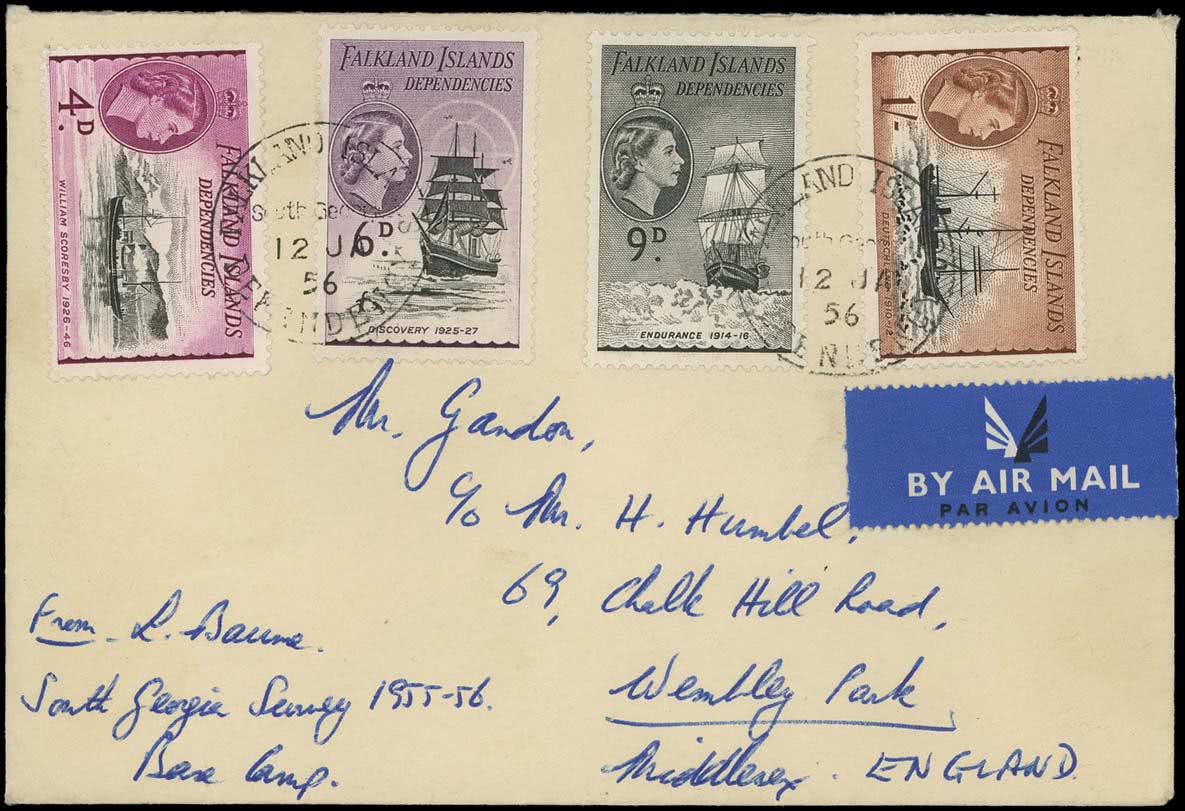 4D.
FALKLAND ISLANDS
DEPENDENCIES
WILLIAM SCORESBY 1926-46
FALKLAND ISLANDS
DEPENDENCIES
6D.
DISCOVERY 1925-27
FALKLAND ISLANDS
DEPENDENCIES
9D.
ENDURANCE 1914-16
1/-
FALKLAND ISLANDS
DEPENDENCIES
DEUTSCHLAND 1910-12
12 JA
56
12 JA
56
BY AIR MAIL
PAR AVION
Mr. Gandon,
c/o Mr. H. Humbel,
69, Chalk Hill Road,
Wembley Park
Middlesex. ENGLAND.
From L. Baume.
South Georgia Survey 1955-56.
Base Camp.